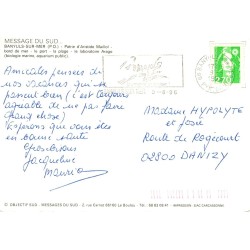 MESSAGE DU SUD
BANYULS-SUR-MER (P.O.) - Patrie d'Aristide Maillol :
bord de mer - le port - la plage - le laboratoire Arago
(biologie marine, aquarium public).
Amicales pensées de
nos vacances qui se
passent bien (c'est toujours
agréable de ne pas faire
grand chose)
Espérons que vous êtes
en bonne santé
Grosses bises
Jacqueline
Maurice
2,70
Madame HYPOLYTE
et Josie
Route de Rogécourt
02800 DANIZY
© OBJECTIF SUD - MESSAGES DU SUD - 66160 Le Boulou